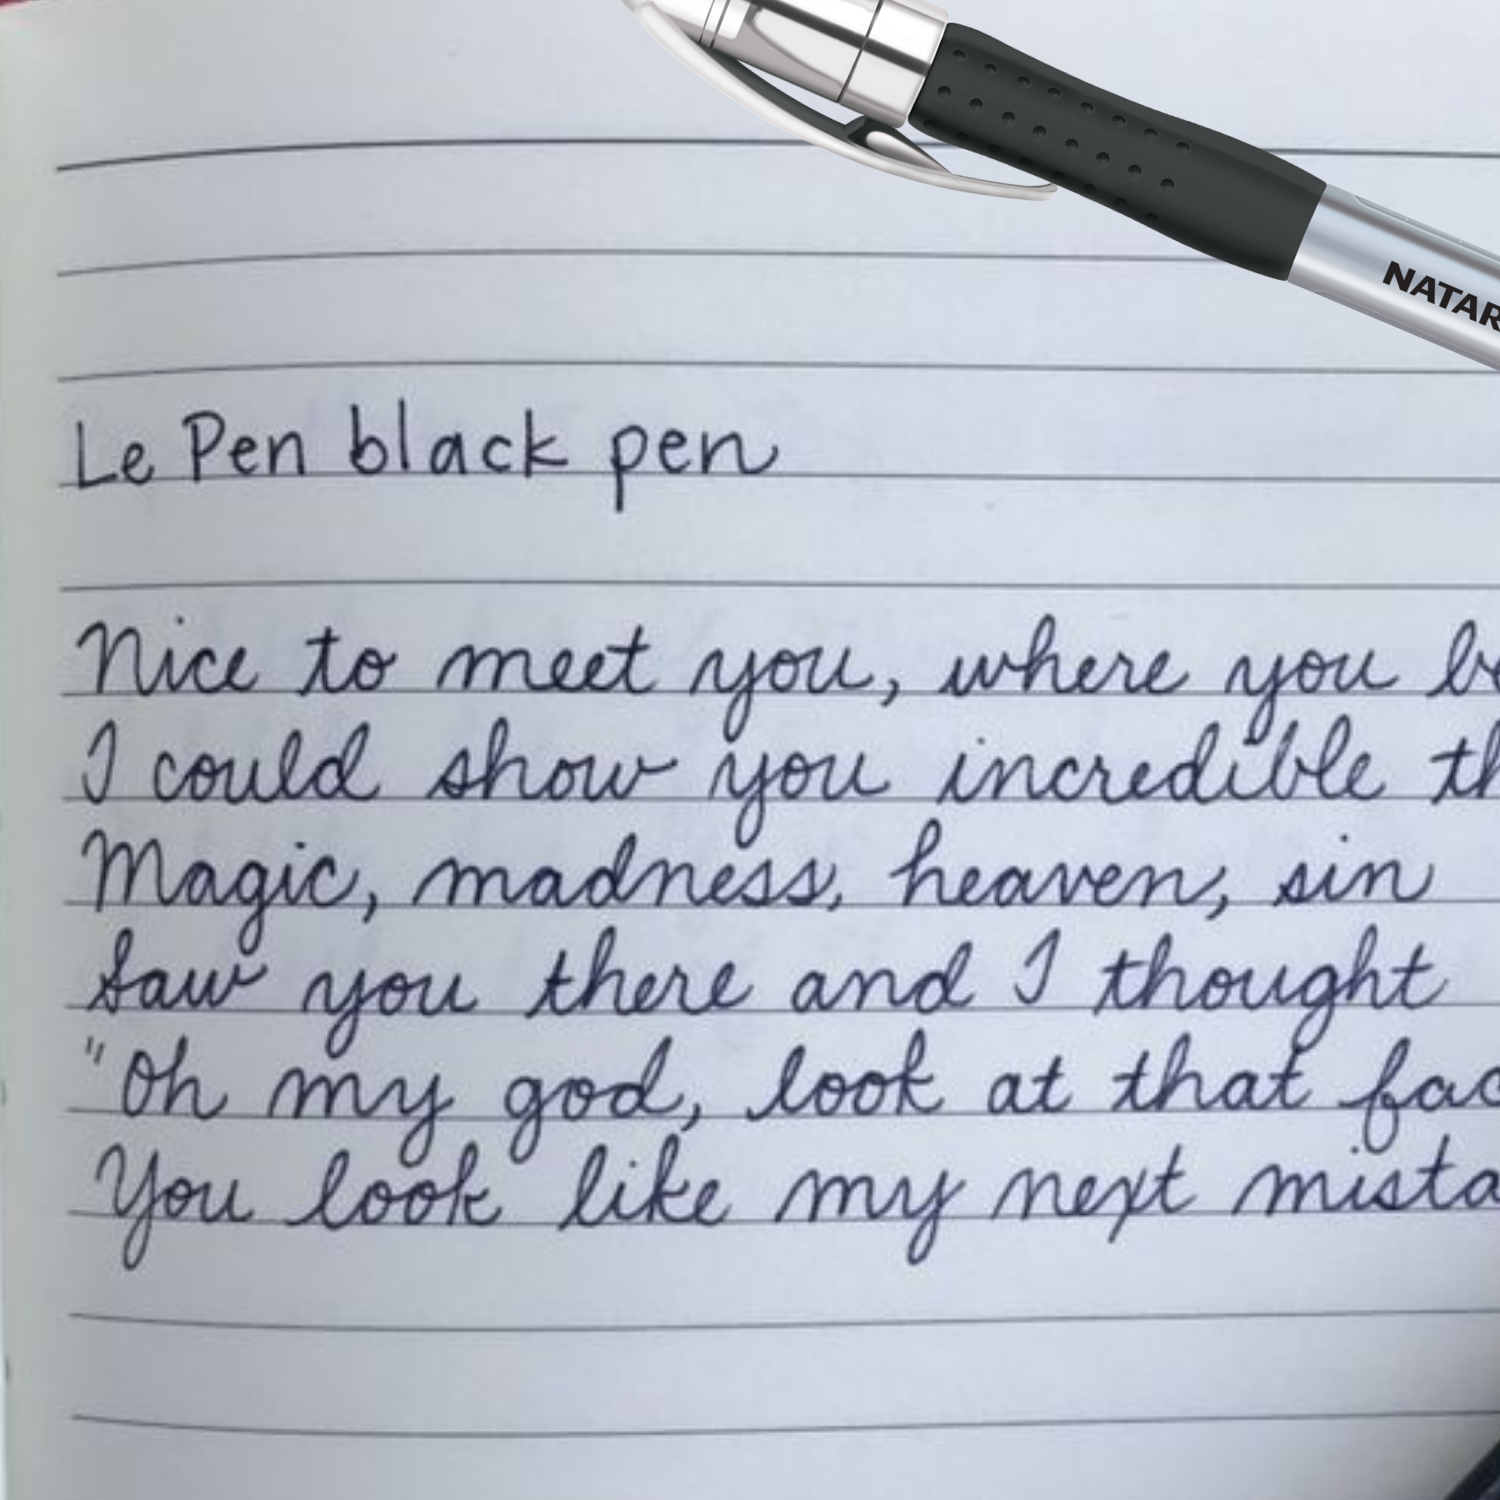 NATAR
Le Pen black pen
Nice to meet you, where you
I could show you incredible
Magic, madness, heaven, sin
Saw you there and I thought
"Oh my god, look at that
You look like my next